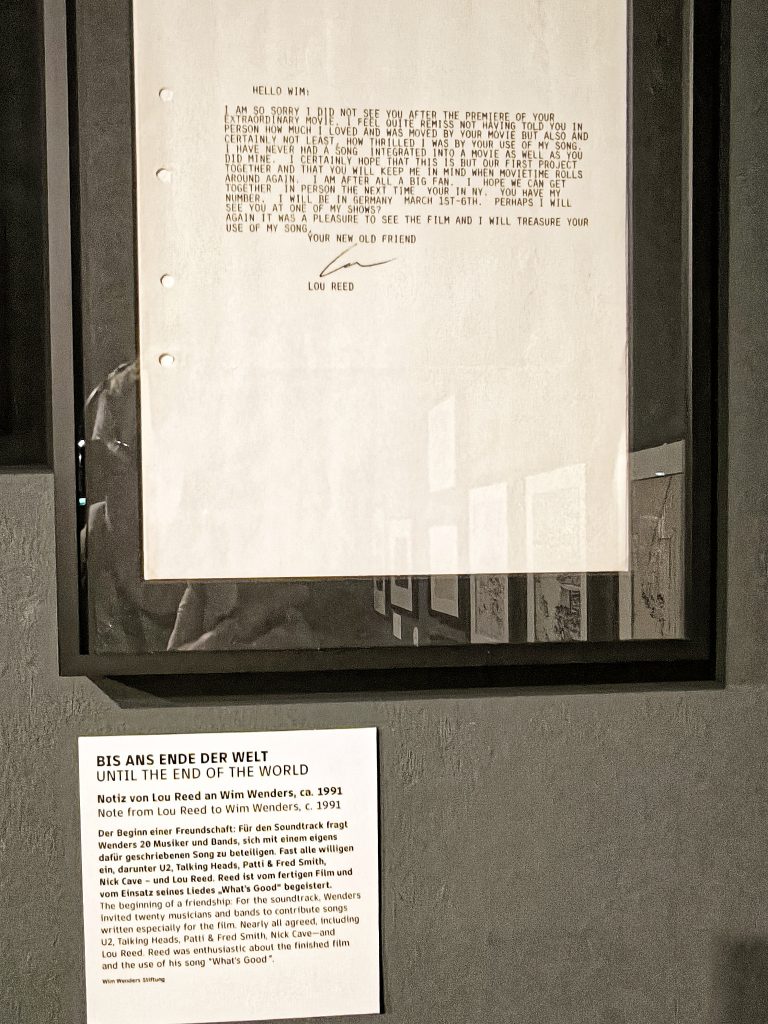 HELLO WIM:
I AM SO SORRY I DID NOT SEE YOU AFTER THE PREMIERE OF YOUR
EXTRAORDINARY MOVIE. I FEEL QUITE REMISS NOT HAVING TOLD YOU IN
PERSON HOW MUCH I LOVED AND WAS MOVED BY YOUR MOVIE BUT ALSO AND
CERTAINLY NOT LEAST, HOW THRILLED I WAS BY YOUR USE OF MY SONG.
I HAVE NEVER HAD A SONG INTEGRATED INTO A MOVIE AS WELL AS YOU
DID MINE. I CERTAINLY HOPE THAT THIS IS BUT OUR FIRST PROJECT
TOGETHER AND THAT YOU WILL KEEP ME IN MIND WHEN MOVIETIME ROLLS
AROUND AGAIN. I AM AFTER ALL A BIG FAN. I HOPE WE CAN GET
TOGETHER IN PERSON THE NEXT TIME YOUR IN NY. YOU HAVE MY
NUMBER. I WILL BE IN GERMANY MARCH 1ST-6TH. PERHAPS I WILL
SEE YOU AT ONE OF MY SHOWS?
AGAIN IT WAS A PLEASURE TO SEE THE FILM AND I WILL TREASURE YOUR
USE OF MY SONG.
YOUR NEW OLD FRIEND
LOU REED
BIS ANS ENDE DER WELT
UNTIL THE END OF THE WORLD
Notiz von Lou Reed an Wim Wenders, ca. 1991
Note from Lou Reed to Wim Wenders, c. 1991
Der Beginn einer Freundschaft: Für den Soundtrack fragt
Wenders 20 Musiker und Bands, sich mit einem eigens
dafür geschriebenen Song zu beteiligen. Fast alle willigen
ein, darunter U2, Talking Heads, Patti & Fred Smith,
Nick Cave – und Lou Reed. Reed ist vom fertigen Film und
vom Einsatz seines Liedes „What's Good" begeistert.
The beginning of a friendship: For the soundtrack, Wenders
invited twenty musicians and bands to contribute songs
written especially for the film. Nearly all agreed, including
U2, Talking Heads, Patti & Fred Smith, Nick Cave—and
Lou Reed. Reed was enthusiastic about the finished film
and the use of his song "What's Good".
Wim Wenders Stiftung